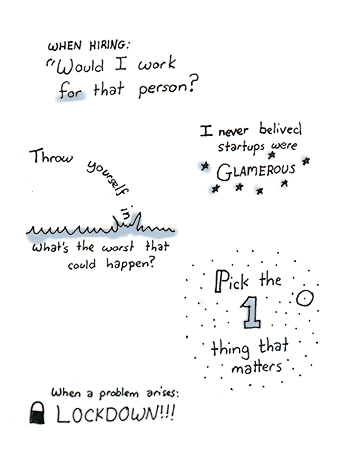 WHEN HIRING:
"Would I work
for that person?
I never belived
startups were
GLAMEROUS
Throw yourself
in
What's the worst that
could happen?
Pick the
1
thing that
matters
When a problem arises:
LOCKDOWN!!!